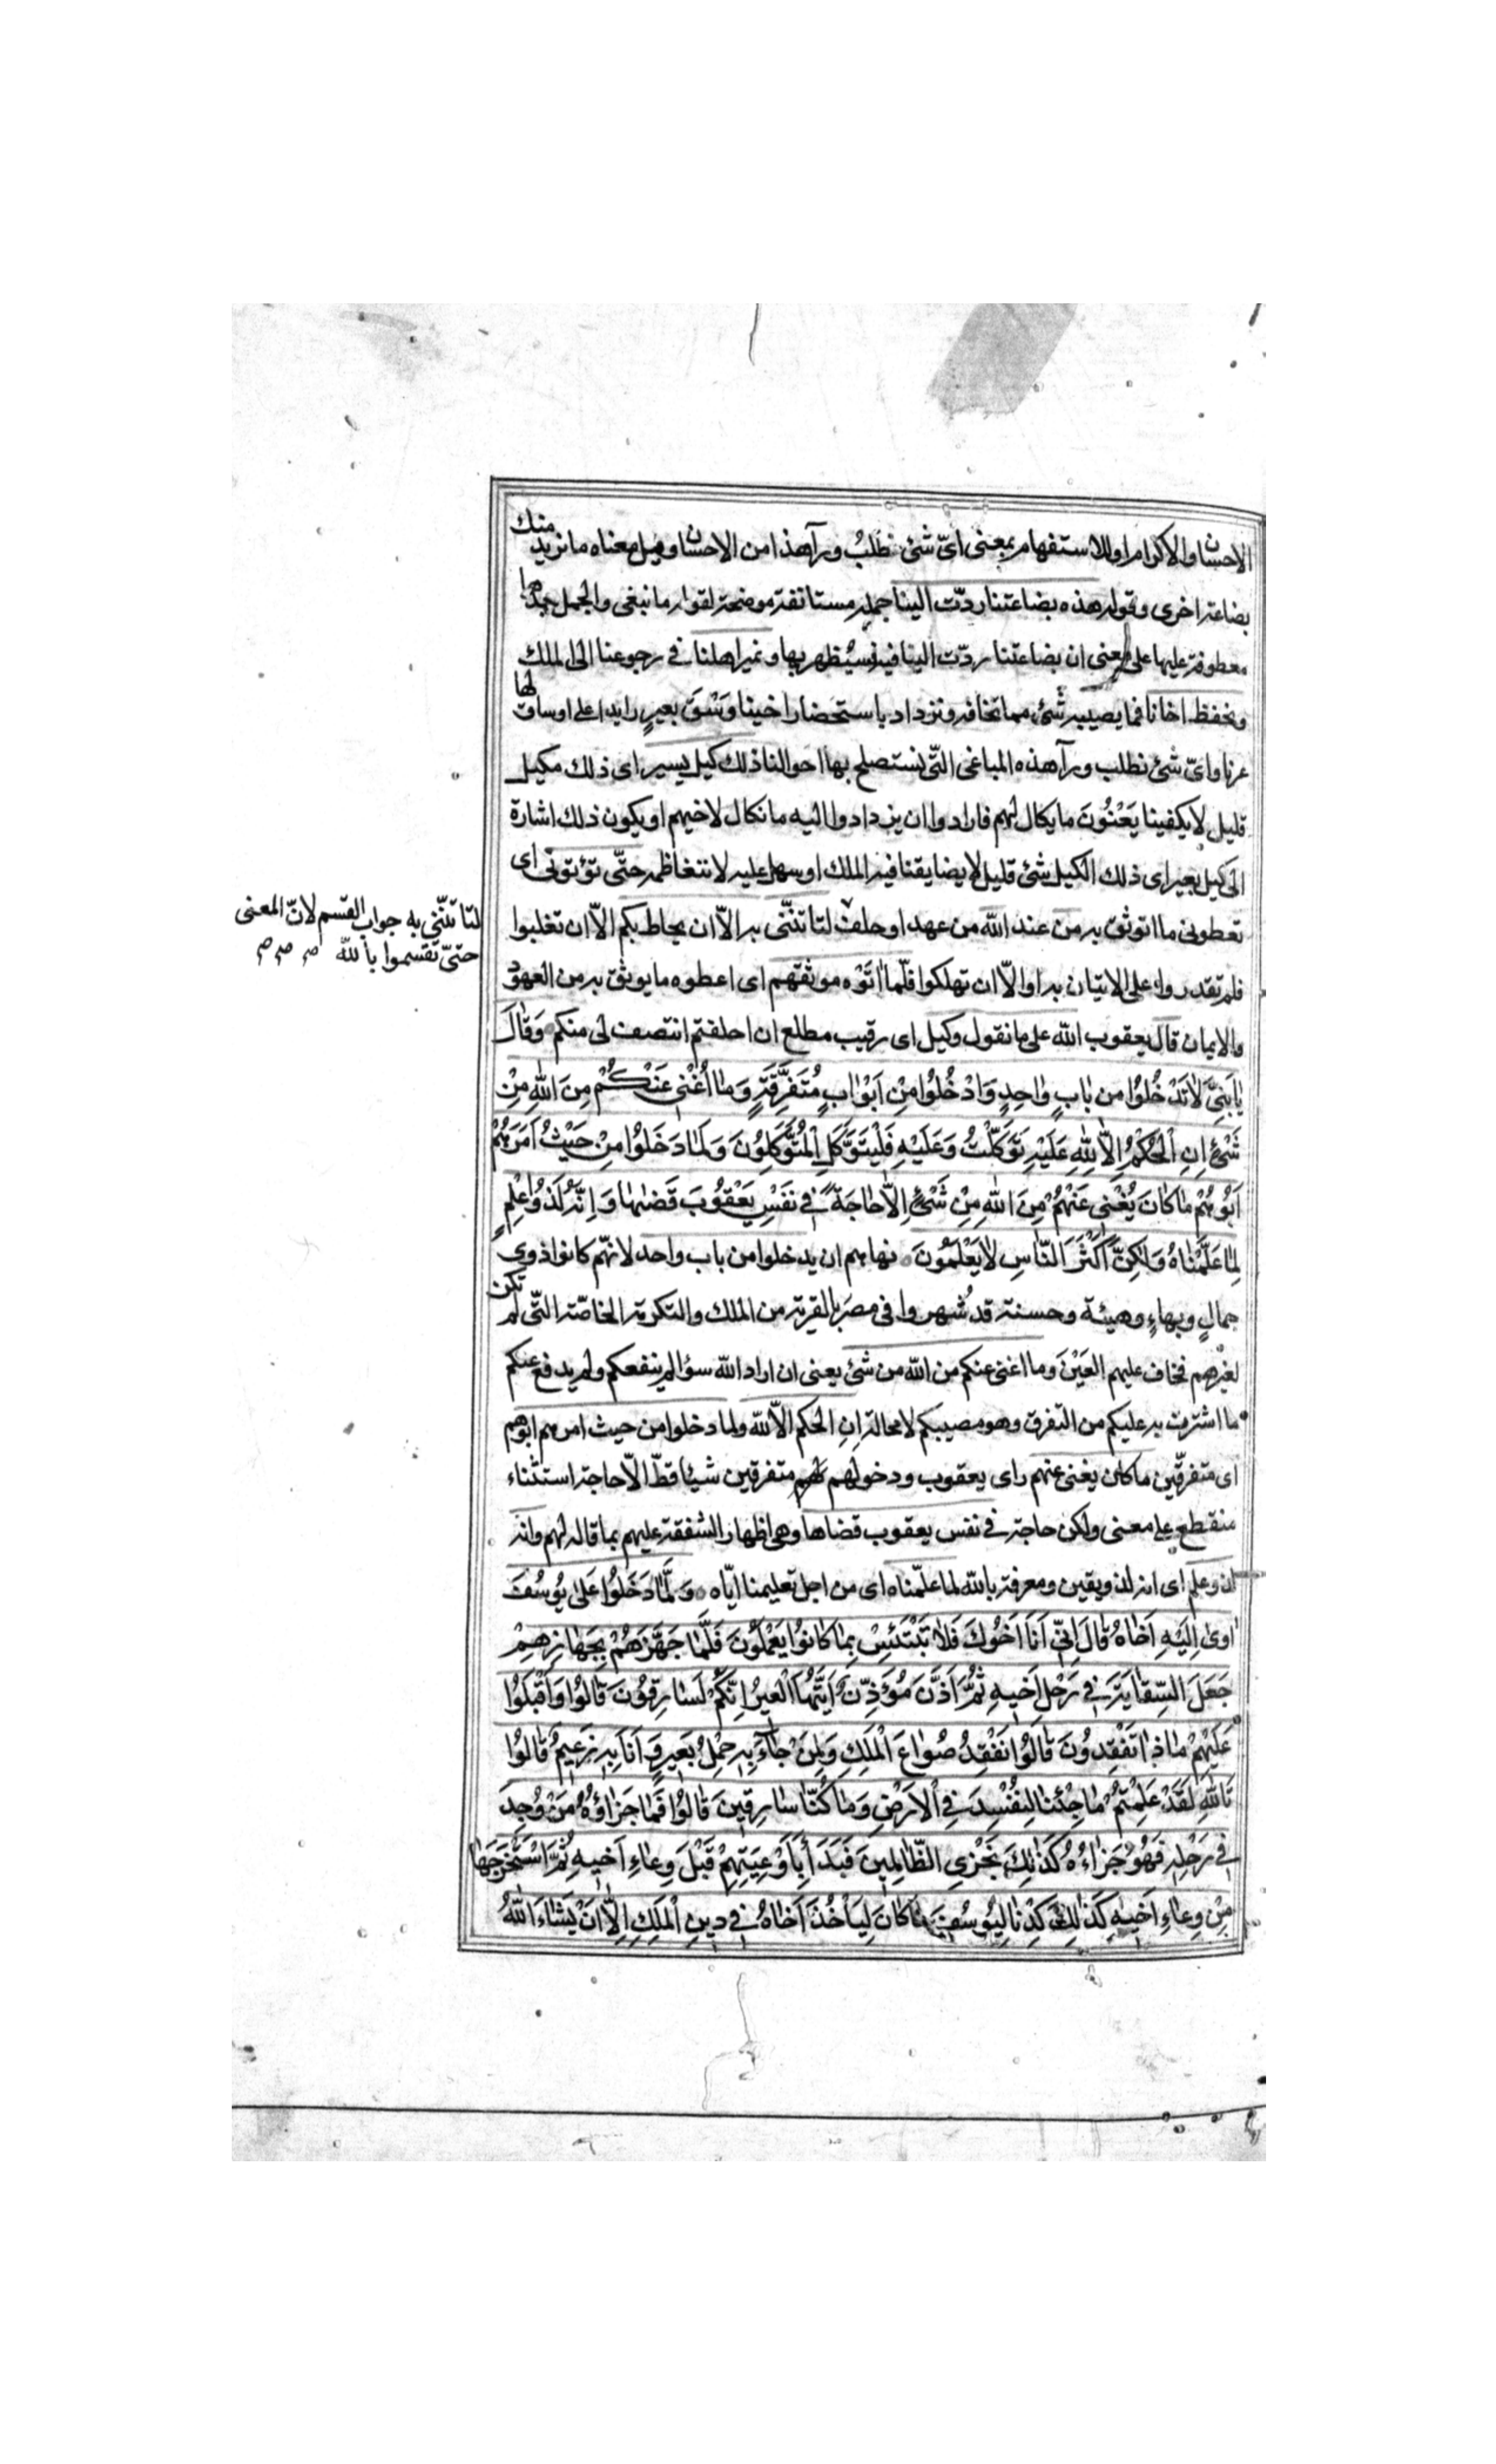 الاحسان والاكرام او للاستفهام بمعنى اىّ شئ نطلب ورآ هذا من الاحسان وقيل معناه ما نريد منك
بضاعة اخرى وقوله هذه بضاعتنا ردّت الينا جملة مستانفة موضحة لقوله ما نبغى والجمل بعدها
معطوفة عليها على معنى ان بضاعتنا ردّت الينا فنستظهر بها ونمير اهلنا فى رجوعنا الى الملك
ونحفظ اخانا فما يصيبه شئ مما تخافه ونزداد باستحضار اخينا وَسْقَ بعيرٍ زايدا على اوساق لها
عرنا واىّ شئ نطلب ورآ هذه المباغى التّى نستصلح بها احوالنا ذلك كيل يسير اى ذلك مكيل
قليل لا يكفينا يَعْنُوُنَ ما يكال لهم فارادوا ان يزدادوا اليه ما نكال لاخيهم او يكون ذلك اشارة
الى كيل بعير اى ذلك الكيل شئ قليل لا يضايقنا فيه الملك او سهل عليه لا نتغاظمه حتّى تؤتونى اى
تعطونى ما اتوثق به من عند الله من عهد او حلف لتاتنّنى به الاّ ان يحاط بكم الاّ ان تغلبوا
لتاتنّنى به جواب القسم لانّ المعنى
حتىّ تقسموا بالله
فلم تقدروا على الاتيان به او الاّ ان تهلكوا فلّما اٰتَوْه موثقهم اى اعطوه ما يوثق به من العهود
والايمان قال يعقوب الله على ما نقول وكيل اى رقيب مطلع ان احلفتم انتصف لى منكم وَقٰالَ
يٰا بَنِىَّ لٰا تَدْخُلُوُا مِن بٰابٍ وٰاحِدٍ وَادْخُلُوُا مِنْ اَبْوٰابٍ مُتَفَرِّقَةٍ وَمٰا اُغْنِى عَنْكُمْ مِنَ اللهِ مِنْ
شَئٍْ اِنِ الْحُكْمُ اِلاّٰ لِلّٰهِ عَلَيْهِ تَوَكَّلْتُ وَعَلَيْهِ فَلْيَتَوَكَّلِ الْمُتَوَكِّلُونَ وَلَمّٰا دَخَلُوُا مِنْ حَيْثُ اَمَرَهُمْ
اَبُوُهُمْ مٰا كٰانَ يُغْنِى عَنْهُمْ مِنَ اللهِ مِنْ شَئٍْ اِلاّٰ حٰاجَةً فِى نَفْسِ يَعْقُوُبَ قَضٰيهٰا وَاِنَّهُ لَذُوُا عِلْمٍ
لِمٰا عَلَّمْنٰاهُ وَلٰكِنَّ اَكْثَرَ النّٰاسِ لاٰ يَعْلَمُونَ نهاهم ان يدخلوا من باب واحد لانهّم كانوا ذوى
جمالٍ وبهاءٍ وهيئة وحسنة قد شُهروا فى مصر بالقربة من الملك والتكرمة الخاصّة التّى لم تكن
لغيرهم فخاف عليهم العَيْنَ وما اغنى عنكم من الله من شئ يعنى ان اراد الله سؤا لم ينفعكم ولم يدفع عنكم
ما اشرت به عليكم من التفرق وهو مصيبكم لا محالة اِنِ الحكم الاّ لله ولما دخلوا من حيث امرهم ابوهم
اى متفرقّين ما كان يغنى عنهم راى يعقوب ودخولهم متفرقين شيئا قطّ الاّ حاجة استثناء
منقطع على معنى ولكن حاجة فى نفس يعقوب قضاها وهى اظهار الشفقة عليهم بما قاله لهم وانه
لذو علم اى انه لذو يقين ومعرفة بالله لما علمّناه اى من اجل تعليمنا ايّاه وَلَمّٰا دَخَلُوُا عَلىٰ يُوُسُفَ
اٰوىٰ اِلَيْهِ اَخٰاهُ قٰالَ اِنّىِ اَنَا اَخُوُكَ فَلاٰ تَبْتَئِسْ بِمٰا كٰانُوُا يَعْمَلُونَ فَلَمّٰا جَهَّزَهُمْ بِجَهٰازِهِمْ
جَعَلَ السِّقٰايَةَ فِى رَحْلِ اَخيهِ ثُمَّ اَذَّنَ مُؤَذِّنٌ اَيَّتُهَا الْعيرُ اِنَّكُمْ لَسٰارِقوُنَ قٰالُوُا وَاَقْبَلُوُا
عَلَيْهِمْ مٰا ذٰا تَفْقِدُونَ قٰالُوُا نَفْقِدُ صُوٰاعَ الْمَلِكِ وَلِمَنْ جٰآءَ بِهِ حِمْلُ بَعيرٍ وَ اَنَا بِهِ زَعيمٌ قٰالُوُا
تَاللهِ لَقَدْ عَلِمْتُمْ مٰا جِئْنٰا لِنُفْسِدَ فِى الْاَرْضِ وَمٰا كُنّٰا سٰارِقينَ قٰالُوُا فَمٰا جَزٰاؤُهُ مَنْ وُجِدَ
فى رَحْلِهِ فَهُوَ جَزٰاءُهُ كَذٰلِكَ نَجْزِى الظّٰالِمينَ فَبَدَأَ بِاَوْعِيَتِهِمْ قَبْلَ وِعٰاءِ اَخيهِ ثُمَّ اسْتَخْرَجَهٰا
مِنْ وِعٰاءِ اَخيهِ كَذٰلِكَ كِدْنٰا لِيُوُسُفَ مٰا كٰانَ لِيَأْخُذَ اَخٰاهُ فى دينِ الْمَلِكِ اِلاّٰ اَنْ يَشٰاءَ اللهُ